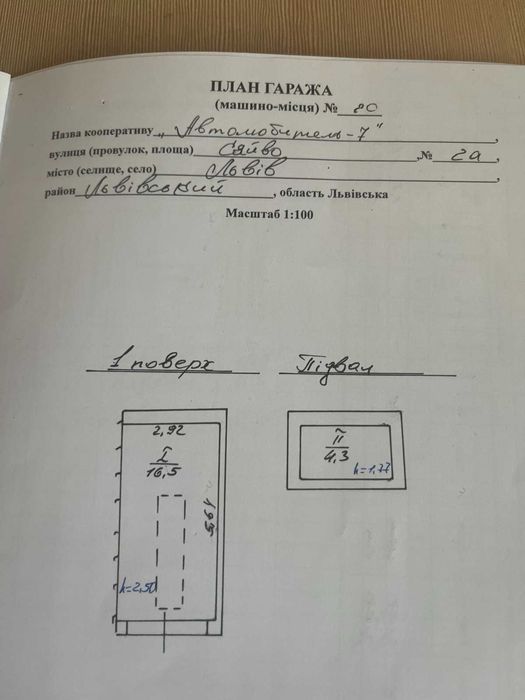 ПЛАН ГАРАЖА
(машино-місця) № 80
Назва кооперативу „Автомобитель-7"
вулиця (провулок, площа) Сяйво, № 2а,
місто (селище, село) Львів,
район Львівський, область Львівська
Масштаб 1:100
1 поверх Підвал
2,92
I
16,5
5,64
h=2,50
II
4,3
h=1,77